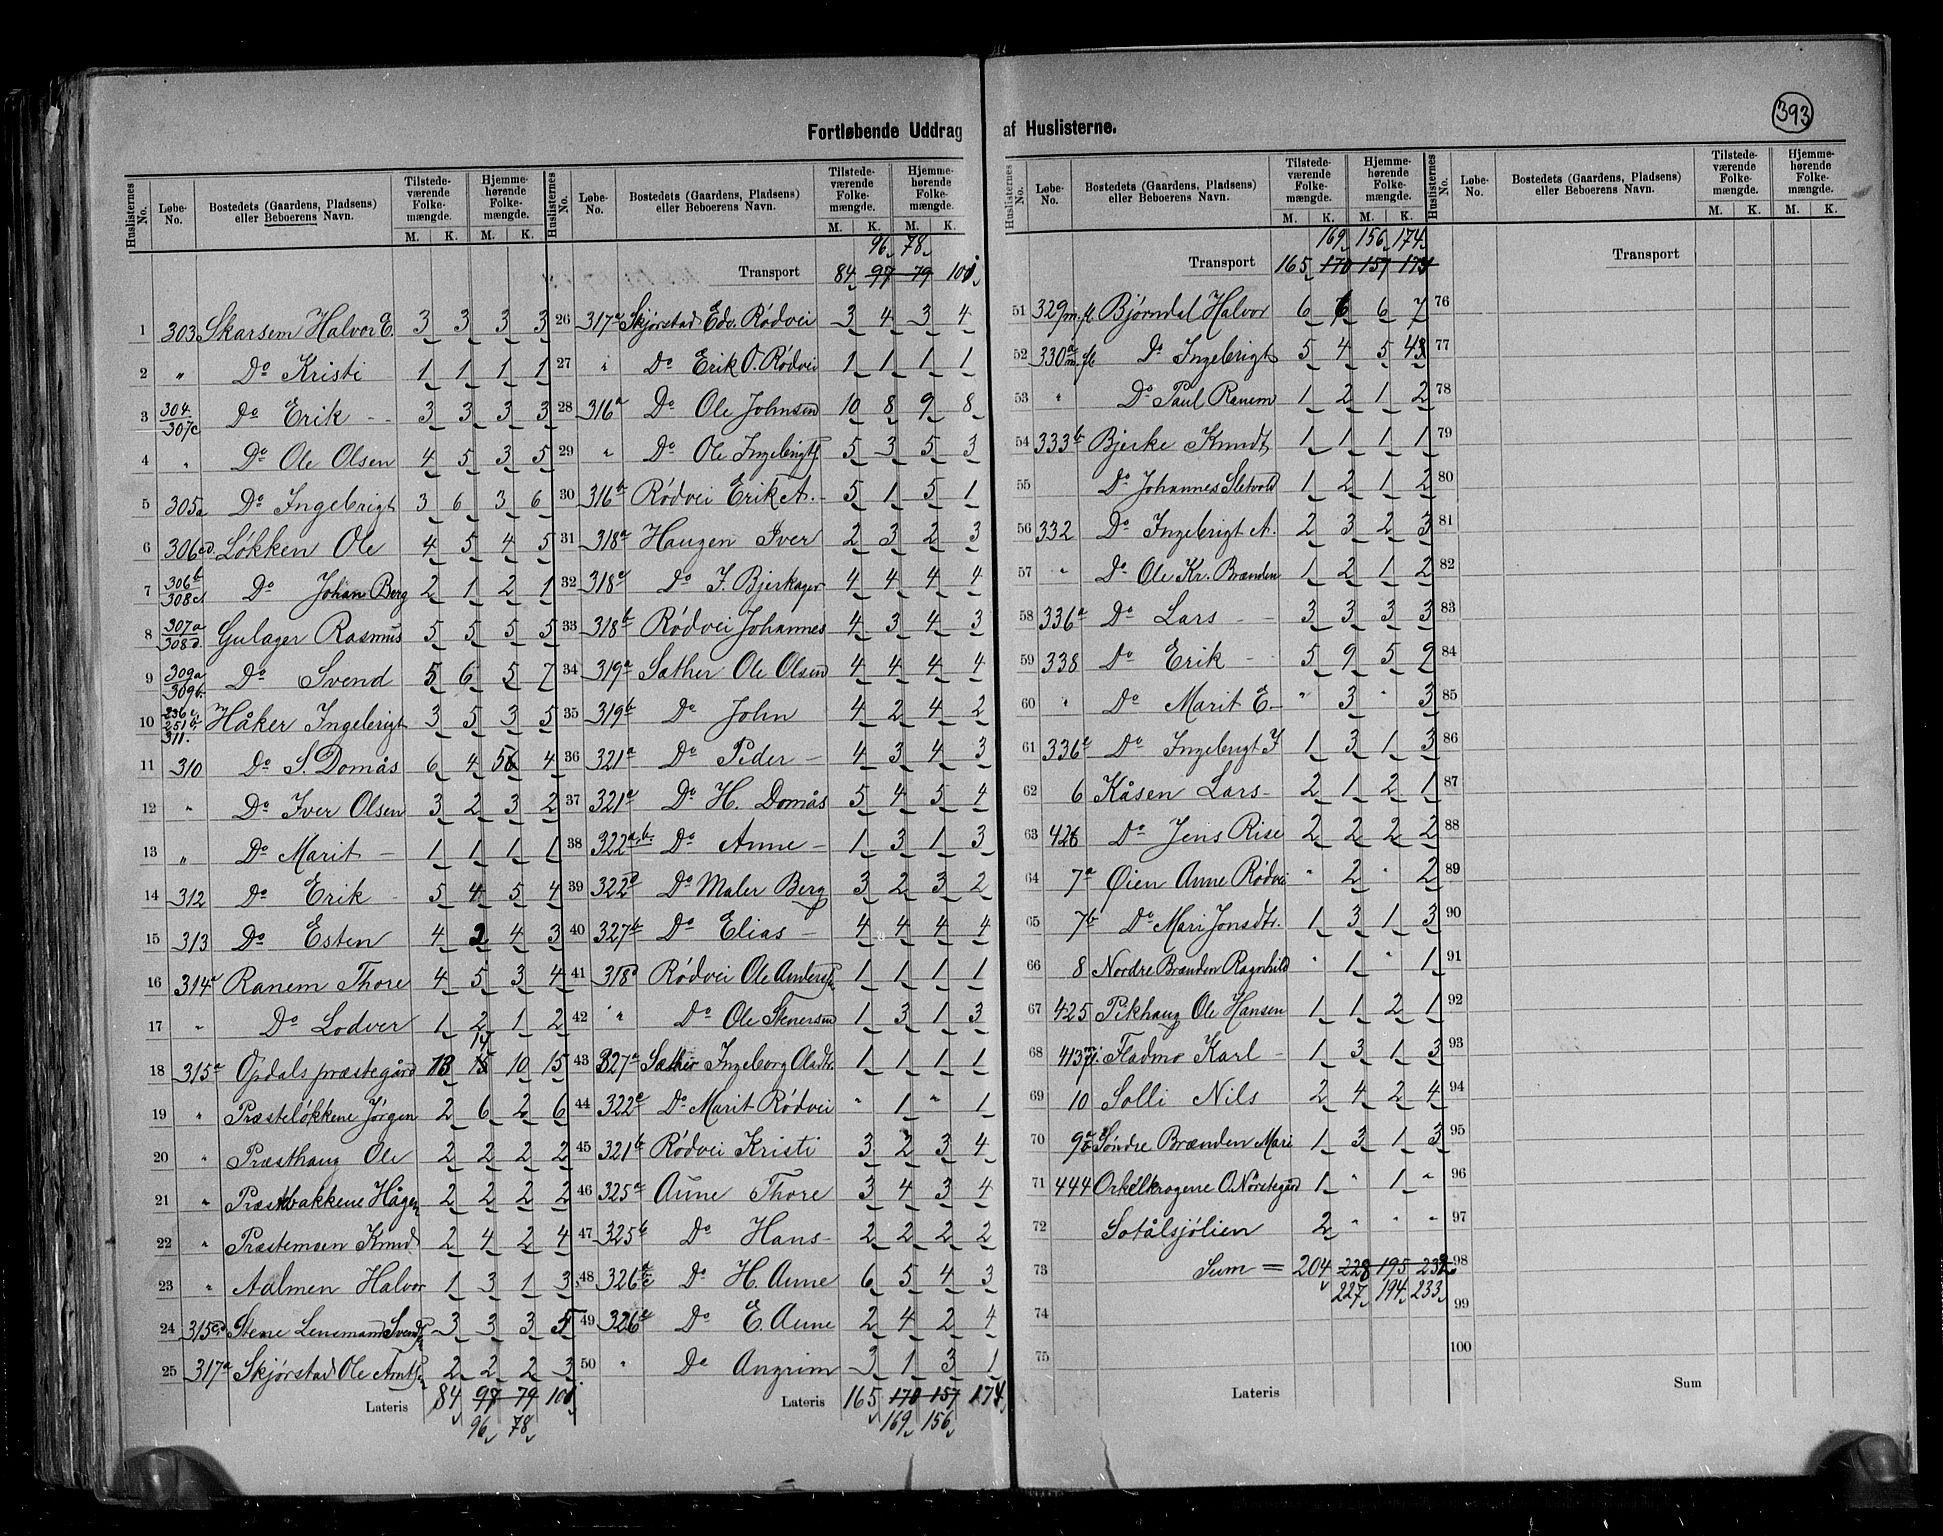 393
Fortløbende Uddrag af Huslisterne.
Huslisternes No. Løbe-No. Bostedets (Gaardens, Pladsens) eller Beboerens Navn. Tilstedeværende Folkemængde. M. K. Hjemmehørende Folkemængde. M. K.
1 303 Skarsem Halvor E. 3 3 3 3
2 " Do Kristi 1 1 1 1
3 304 307c Do Erik - 3 3 3 3
4 " Do Ole Olsen 4 5 3 5
5 305a Do Ingebrigt 3 6 3 6
6 306cd. Løkken Ole 4 5 4 5
7 306b 308c Do Johan Berg 2 1 2 1
8 307a 308d. Gulager Rasmus 5 5 5 5
9 309a 309b. Do Svend 5 6 5 7
10 311. Håker Ingebrigt 3 5 3 5
11 310 Do S. Domås 6 4 5 4
12 " Do Iver Olsen 3 2 3 2
13 " Do Marit - 1 1 1 1
14 312 Do Erik - 5 4 5 4
15 313 Do Esten 4 2 4 3
16 314a Ranem Thore 4 5 3 4
17 " Do Lodver 1 2 1 2
14
18 315a Opdals præstegård 13 15 10 15
19 " Præsteløkkene Jørgen 2 6 2 6
20 " Præsthaug Ole 2 2 2 2
21 " Præstbakkene Hågen 2 2 2 2
22 " Præstemoen Knud 2 4 2 4
23 " Aalmen Halvor 1 3 1 3
24 315 Stene Lensmand Svends 3 3 3 5
25 317a Skjørstad Ole Arnts 2 2 2 3
Lateris 84 97 79 101
96 78
96 78
Transport 84 97 79 101
26 317a Skjørstad Edv. Rødvei 3 4 3 4
27 " Do Erik O. Rødvei 1 1 1 1
28 316a Do Ole Johnsen 10 8 9 8
29 " Do Ole Ingebrigts 5 3 5 3
30 316b Rødvei Erik A. - 5 1 5 1
31 318a Haugen Iver 2 3 2 3
32 318c Do I. Bjerkager 4 4 4 4
33 318b Rødvei Johannes 4 3 4 3
34 319a Sæther Ole Olsen 4 4 4 4
35 319b Do John 4 2 4 2
36 321a Do Peder - 4 3 4 3
37 321c Do H. Domås 5 4 5 4
38 322a,b Do Anne - 1 3 1 3
39 322d Do Maler Berg 3 2 3 2
40 327b Do Elias - 4 4 4 4
41 318d Rødvei Ole Anders 1 1 1 1
42 " Do Ole Stenersen 1 3 1 3
43 327a Sæther Ingeborg Olsdtr. 1 1 1 1
44 322c Do Marit Rødvei " 1 " 1
45 321b Rødvei Kristi 3 2 3 4
46 325a Aune Thore 3 4 3 4
47 325b Do Hans - 2 2 2 2
48 326 Do H. Aune 6 5 4 3
49 326 Do E. Aune 2 4 2 4
50 " Do Angrim 3 1 3 1
Lateris 165 170 157 174
169 156
169 156 174
Transport 165 170 157 175
51 329 m.fl. Bjørndal Halvor 6 6 6 7
52 330a m.fl. Do Ingebrigt 5 4 5 4
53 " Do Paul Ranem 1 2 1 2
54 333b Bjerke Knudt 1 1 1 1
55 Do Johannes Sletvold 1 2 1 2
56 332 Do Ingebrigt A. 2 3 2 3
57 " Do Ole Kr. Brænden 1 2 1 2
58 336a Do Lars - 3 3 3 3
59 338 Do Erik - 5 9 5 9
60 " Do Marit E. " 3 " 3
61 336c Do Ingebrigt I 1 3 1 3
62 6 Kåsen Lars - 2 1 2 1
63 426 Do Jens Rise 2 2 2 2
64 7a Øien Anne Rødvei " 2 " 2
65 7b Do Mari Jonsdtr. 1 3 1 3
66 8 Nordre Brænden Ragnhild " 1 " 1
67 425 Pikhaug Ole Hansen 1 1 2 1
68 413 Fladmo Karl - 1 3 1 3
69 10 Solli Nils 2 4 2 4
70 9a Søndre Brænden Mari 1 3 1 3
71 444 Orkelkrogene O. Nørstegård 1 " 1 "
72 Sotålsjølien 2 " " "
73 Sum = 204 228 195 232
227 194 233
74
75
Lateris
Transport
76
77
78
79
80
81
82
83
84
85
86
87
88
89
90
91
92
93
94
95
96
97
98
99
100
Sum